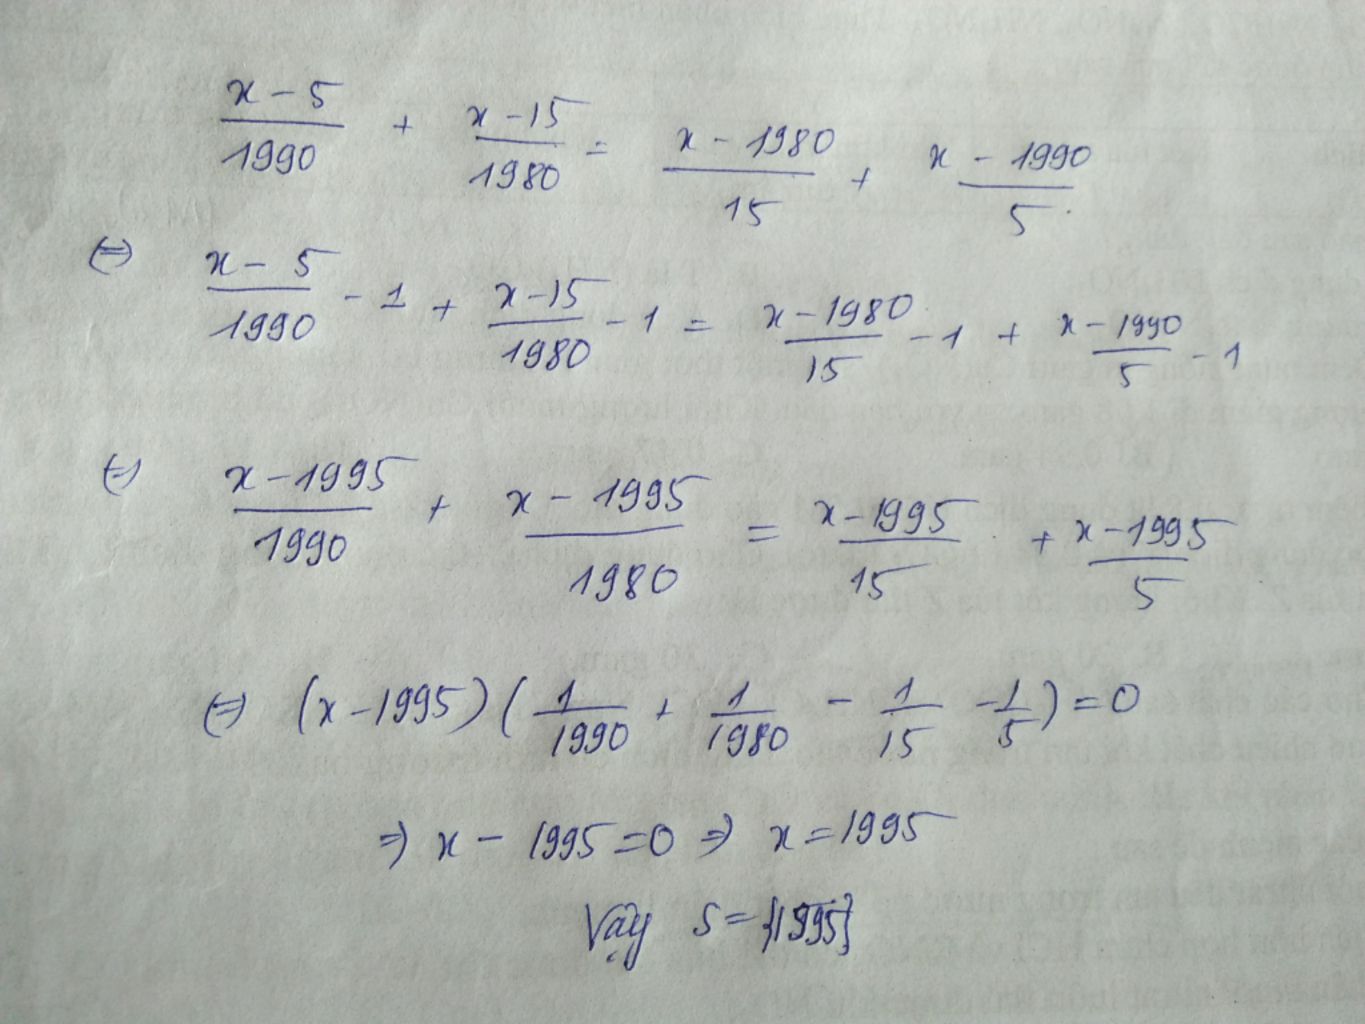 x - 5 / 1990 + x - 15 / 1980 = x - 1980 / 15 + x - 1990 / 5
(=) x - 5 / 1990 - 1 + x - 15 / 1980 - 1 = x - 1980 / 15 - 1 + x - 1990 / 5 - 1
(=) x - 1995 / 1990 + x - 1995 / 1980 = x - 1995 / 15 + x - 1995 / 5
(=) (x - 1995) ( 1 / 1990 + 1 / 1980 - 1 / 15 - 1 / 5 ) = 0
=> x - 1995 = 0 => x = 1995
Vậy S = {1995}